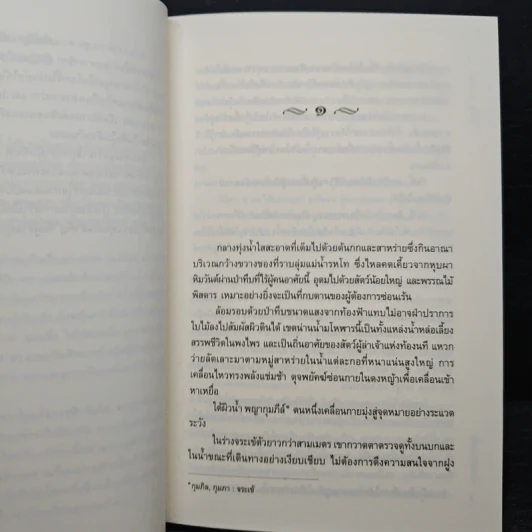 ๑
กลางทุ่งน้ำใสสะอาดที่เต็มไปด้วยต้นกกและสาหร่ายซึ่งกินอาณา
บริเวณกว้างขวางของที่ราบลุ่มแม่น้ำรหโท ซึ่งไหลคดเคี้ยวจากหุบผา
หิมวันต์ผ่านป่าทึบที่ไร้ผู้คนอาศัยนี้ อุดมไปด้วยสัตว์น้อยใหญ่ และพรรณไม้
พิสดาร เหมาะอย่างยิ่งจะเป็นที่กบดานของผู้ต้องการซ่อนเร้น
ล้อมรอบด้วยป่าทึบขนาดแสงจากท้องฟ้าแทบไม่อาจฝ่าปราการ
ใบไม้ลงไปสัมผัสผิวดินได้ เขตน่านน้ำมโหฬารนี้เป็นทั้งแหล่งน้ำหล่อเลี้ยง
สรรพชีวิตในพงไพร และเป็นถิ่นอาศัยของสัตว์ผู้ล่าเจ้าแห่งท้องนที แหวก
ว่ายลัดเลาะมาตามหมู่สาหร่ายในน้ำแต่ละกอที่หนาแน่นสูงใหญ่ การ
เคลื่อนไหวทรงพลังแช่มช้า ดุจพยัคฆ์ซ่อนกายในดงหญ้าเพื่อเคลื่อนเข้า
หาเหยื่อ
ใต้ผิวน้ำ พญากุมภีล์* ตนหนึ่งเคลื่อนกายมุ่งสู่จุดหมายอย่างระแวด
ระวัง
ในร่างจระเข้ตัวยาวกว่าสามเมตร เขากวาดตาตรวจดูทั้งบนบกและ
ในน้ำขณะที่เดินทางอย่างเงียบเชียบ ไม่ต้องการดึงความสนใจจากฝูง
*กุมภีล, กุมภา : จระเข้